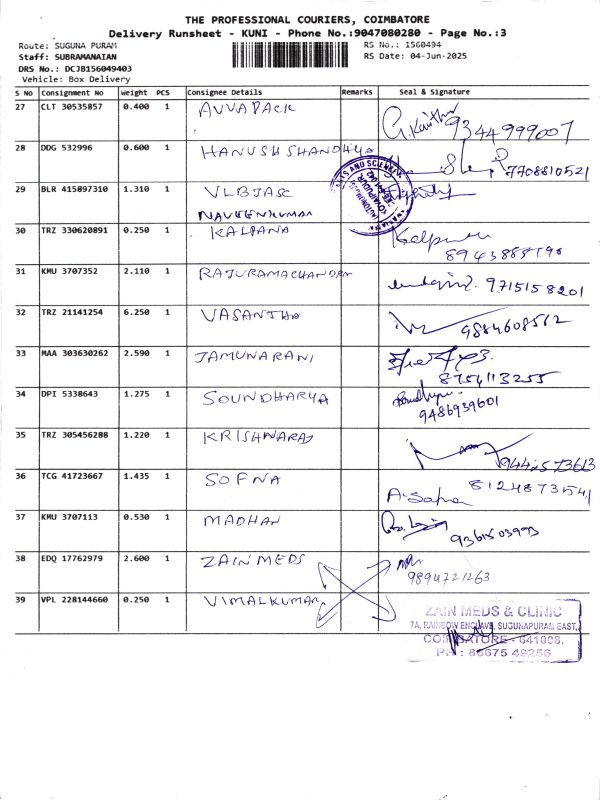 THE PROFESSIONAL COURIERS, COIMBATORE
Delivery Runsheet - KUNI - Phone No.:9047080280 - Page No.:3
Route: SUGUNA PURAM RS No.: 1560494
Staff: SUBRAMANAIAN RS Date: 04-Jun-2025
DRS No.: DCJB156049403
Vehicle: Box Delivery
S No Consignment No Weight PCS Consignee Details Remarks Seal & Signature
27 CLT 30535857 0.400 1 AVVAPACK 9344999007
28 DDG 532996 0.600 1 HANUSH SHANDHYA 7708810521
29 BLR 415897310 1.310 1 VLBJASC
NAVEENKUMAR
30 TRZ 330620891 0.250 1 KALPANA Kalpana
31 KMU 3707352 2.110 1 RAJURAMACHANDRAN 9715158201
32 TRZ 21141254 6.250 1 VASANTHA 9884608512
33 MAA 303630262 2.590 1 JAMUNARANI 8754113255
34 DPI 5338643 1.275 1 SOUNDHARYA
9486939601
35 TRZ 305456288 1.220 1 KRISHNARAJ
36 TCG 41723667 1.435 1 SOFNA
37 KMU 3707113 0.530 1 MADHAN
38 EDQ 17762979 2.600 1 ZAIN MEDS
9894721263
39 VPL 228144660 0.250 1 VIMALKUMAR
ZAIN MEDS & CLINIC
7A, RAINBOW ENCLAVE, SUGUNAPURAM EAST,
COIMBATORE - 641008.
PH : 86675 49256